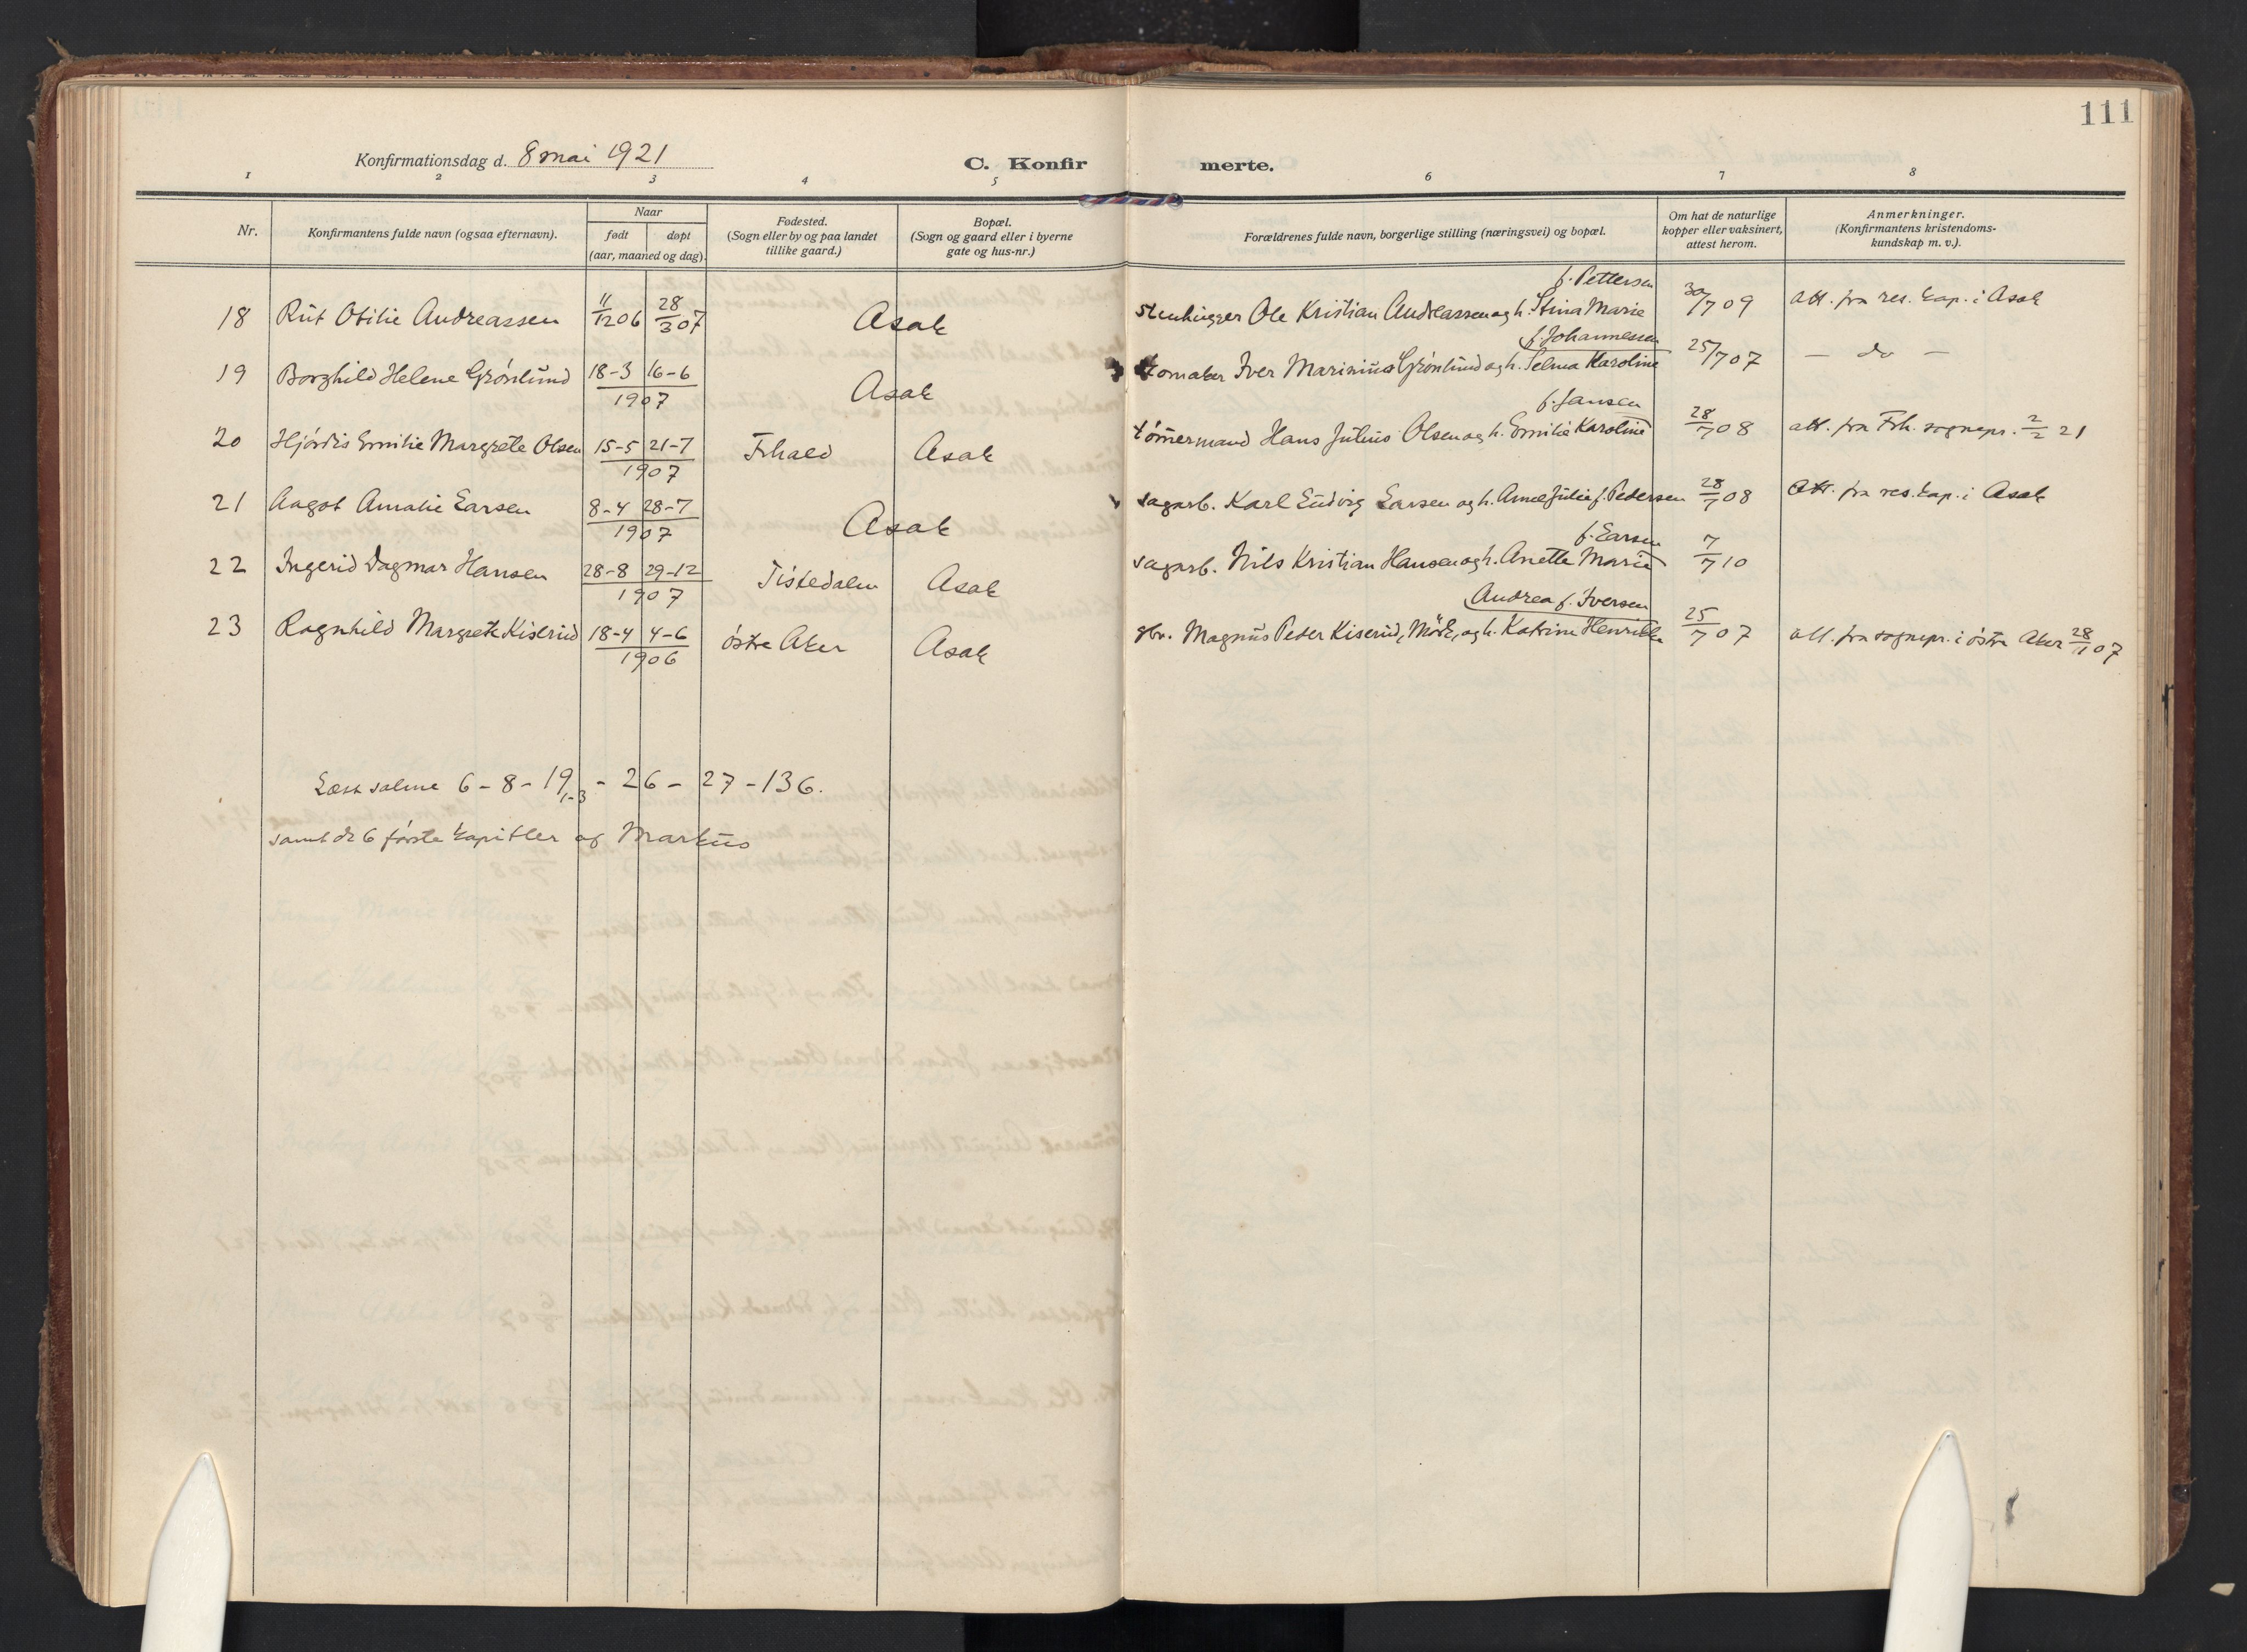 111
Konfirmationsdag d. 8 mai 1921
C. Konfir merte.
1 2 3 4 5 6 7 8
Nr.
Konfirmantens fulde navn (ogsaa efternavn).
Naar
født døpt
(aar, maaned og dag).
Fødested.
(Sogn eller by og paa landet
tillike gaard.)
Bopæl.
(Sogn og gaard eller i byerne
gate og hus-nr.)
Forældrenes fulde navn, borgerlige stilling (næringsvei) og bopæl.
Om hat de naturlige
kopper eller vaksinert,
attest herom.
Anmerkninger.
(Konfirmantens kristendoms-
kundskap m. v.).
f. Pettersen
18 Rut Otilie Andreassen 11/12 06 28/3 07 Asak stenhugger Ole Kristian Andreassen og h. Stina Marie 30/7 09 att. fra res. kap. i Asak
f. Johannessen
19 Borghild Helene Grønlund 18-3 16-6 Asak skomaker Iver Marinius Grønlund og h. Selma Karoline 25/7 07 — do —
1907
f. Jansen
20 Hjördis Emilie Margrete Olsen 15-5 21-7 Frhald Asak tömmermand Hans Julius Olsen og h. Emilie Karoline 28/7 08 att. fra Frh. sognepr. 2/2 21
1907
21 Aagot Amalie Larsen 8-4 28-7 Asak sagarb. Karl Ludvig Larsen og h. Anne Julie f. Pedersen 28/7 08 att. fra res. kap. i Asak
1907
f. Larsen
22 Ingerid Dagmar Hansen 28-8 29-12 Tistedalen Asak sagarb. Nils Kristian Hansen og h. Anette Marie 7/7 10
1907
Andrea f. Iversen
23 Ragnhild Margrete Kiserud 18-4 4-6 östre Aker Asak gbr. Magnus Peder Kiserud, Mörk, og h. Katrine Henrikke 25/7 07 att. fra sognepr. i östre Aker 28/1 07
1906
Læst salme 6 - 8 - 19 1-3 - 26 - 27 - 136.
samt de 6 første kapitler af Markus